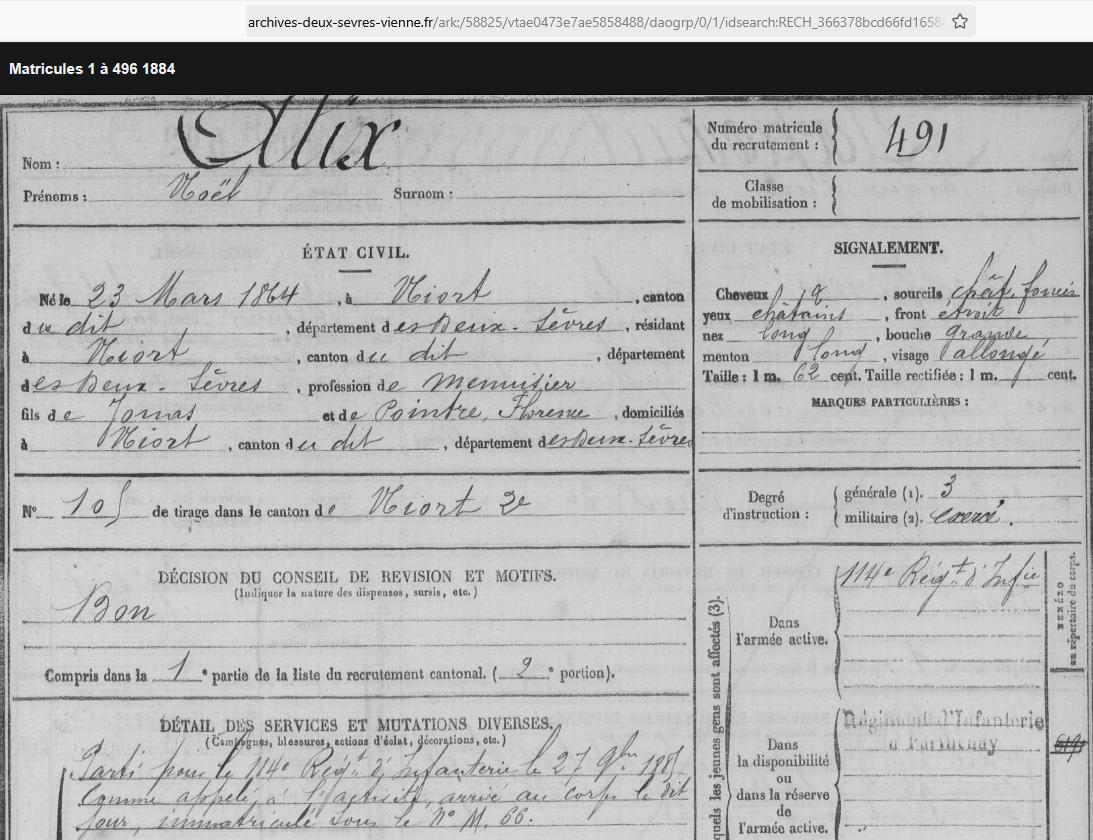 archives-deux-sevres-vienne.fr/ark:/58825/vtae0473e7ae5858488/daogrp/0/1/idsearch:RECH_366378bcd66fd1658
Matricules 1 à 496 1884
Nom : Alix
Prénoms : Noël Surnom :
Numéro matricule
du recrutement : 491
Classe
de mobilisation :
ÉTAT CIVIL.
Né le 23 Mars 1864, à Niort, canton
du dit, département des Deux-Sèvres, résidant
à Niort, canton du dit, département
des Deux-Sèvres, profession de Menuisier
fils de Jonas et de Pointre, Florence, domiciliés
à Niort, canton du dit, département des Deux-Sèvres
SIGNALEMENT.
Cheveux, sourcils chât. foncés
yeux châtains, front étroit
nez long, bouche grande
menton long, visage allongé
Taille : 1 m. 62 cent. Taille rectifiée : 1 m. cent.
MARQUES PARTICULIÈRES :
N° 105 de tirage dans le canton de Niort 2e
Degré
d'instruction :
générale (1). 3
militaire (2). exercé.
DÉCISION DU CONSEIL DE REVISION ET MOTIFS.
(Indiquer la nature des dispenses, sursis, etc.)
Bon
Compris dans la 1e partie de la liste du recrutement cantonal. (2e portion).
DÉTAIL DES SERVICES ET MUTATIONS DIVERSES.
(Campagnes, blessures, actions d'éclat, décorations, etc.)
Parti pour le 114e Régt d'Infanterie le 27 9bre 1885
Comme appelé, à l'activité, arrivé au corps le dit
jour, immatriculé sous le N° M. 66.
quels les jeunes gens sont affectés (3).
Dans
l'armée active.
114e Régt d'Infie
NUMÉRO
au répertoire du corps.
Dans
la disponibilité
ou
dans la réserve
de
l'armée active
Régiment d'Infanterie
à Parthenay